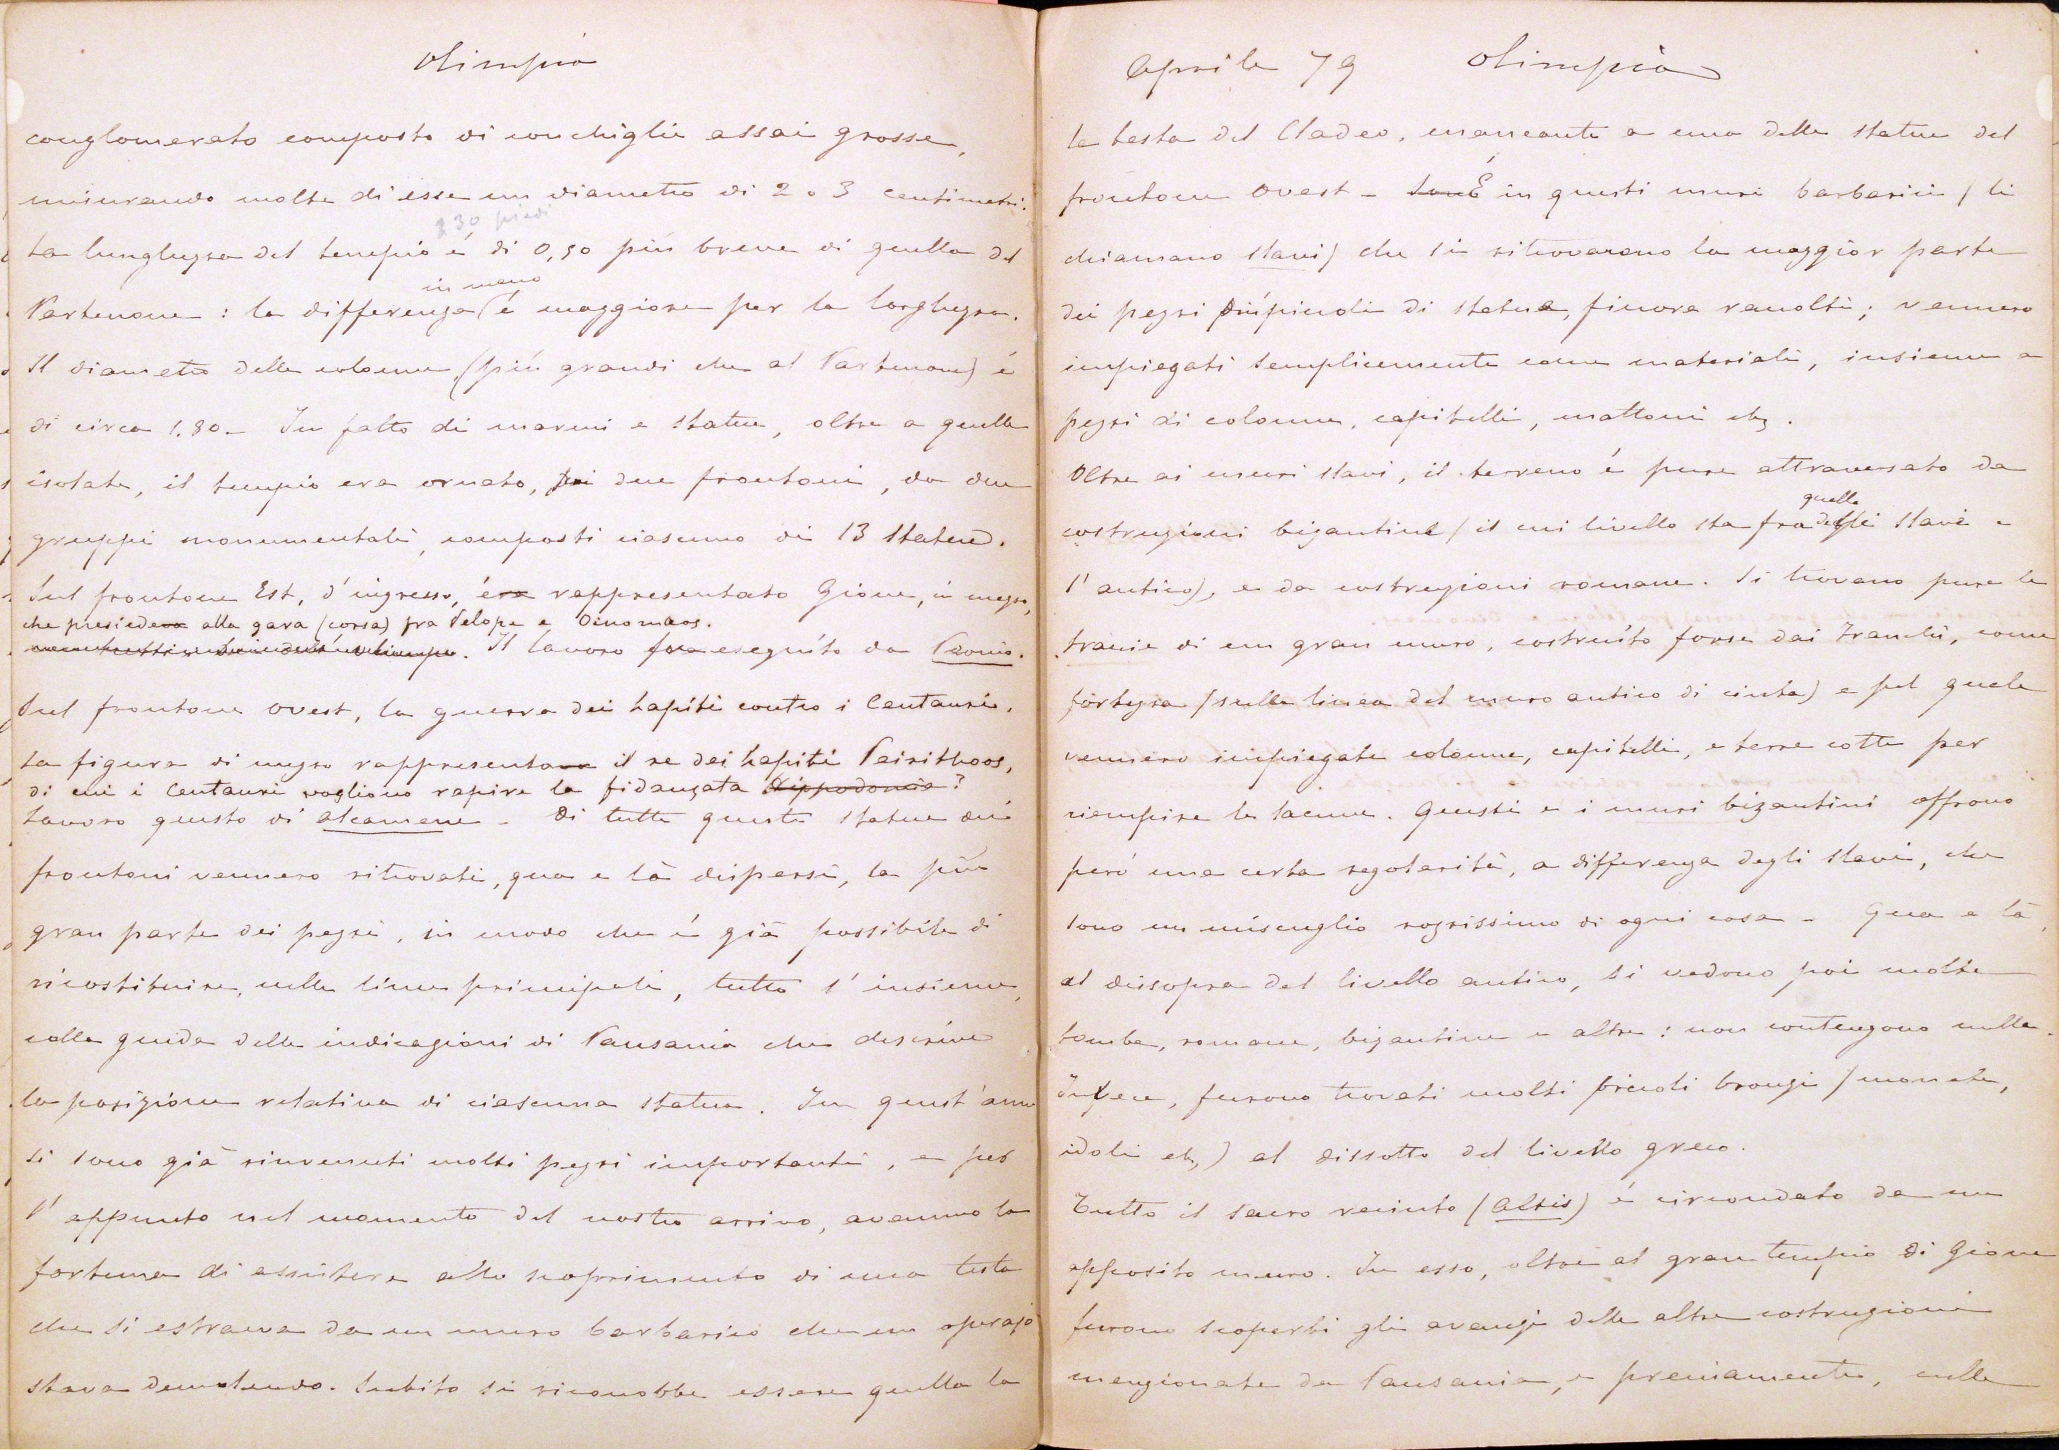 Olimpia
conglomerato composto di conchiglie assai grosse,
misurando molte di esse un diametro di 2 o 3 centimetri.
230 piedi
La lunghezza del tempio é di 0,50 piú breve di quella del
in meno
Partenone : la differenza é maggiore per la larghezza.
Il diametro delle colonne (piú grandi che al Partenone) é
di circa 1.80 - In fatto di marmi e statue, oltre a quelle
isolate, il tempio era ornato, pei due frontoni, da due
gruppi monumentali, composti ciascuno di 13 statue.
Sul frontone Est, d'ingresso, é rappresentato Giove, in mezzo,
che presiede alla gara (corsa) fra Pelope e Oinomaos.
Il lavoro fu eseguito da Peonio.
Sul frontone ovest, la guerra dei Lapiti contro i Centauri.
La figura di mezzo rappresenta il re dei Lapiti Peirithoos,
di cui i Centauri vogliono rapire la fidanzata Hippodamia?
Lavoro questo di Alcamene - Di tutte queste statue dei
frontoni vennero ritrovati, qua e lá dispersi, la piú
gran parte dei pezzi, in modo che é giá possibile di
ricostituire, nelle linee principali, tutto l'insieme,
colla guida delle indicazioni di Pausania che descrive
la posizione relativa di ciascuna statua. In quest'anno
si sono giá rinvenuti molti pezzi importanti, e per
l'appunto nel momento del nostro arrivo, avemmo la
fortuna di assistere allo scoprimento di una testa
che si estraeva da un muro barbarico che un operajo
stava demolendo. Subito si riconobbe essere quella la
Aprile 79 Olimpia
la testa del Cladeo, mancante a una delle statue del
frontone ovest - É in questi muri barbarici (li
chiamano slavi) che si ritrovarono la maggior parte
dei pezzi piú piccoli di statue, finora raccolti; vennero
impiegati semplicemente come materiali, insieme a
pezzi di colonne, capitelli, mattoni etc.
Oltre ai muri slavi, il terreno é pure attraversato da
quello
costruzioni bizantine (il cui livello sta fra degli slavi e
l'antico), e da costruzioni romane. Si trovano pure le
traccie di un gran muro, costruito forse dai Franchi, come
fortezza (sulla linea del muro antico di cinta) e pel quale
vennero impiegate colonne, capitelli, e terre cotte per
riempire le lacune. Questi e i muri bizantini offrono
peró una certa regolaritá, a differenza degli slavi, che
sono un miscuglio rozzissimo di ogni cosa - Qua e lá,
al disopra del livello antico, si vedono poi molte
tombe, romane, bizantine e altre : non contengono nulla.
Invece, furono trovati molti piccoli bronzi (monete,
idoli etc) al dissotto del livello greco.
Tutto il sacro recinto (Altis) é circondato da un
apposito muro. In esso, oltre al gran tempio di Giove
furono scoperti gli avanzi delle altre costruzioni
menzionate da Pausania, e precisamente, nelle